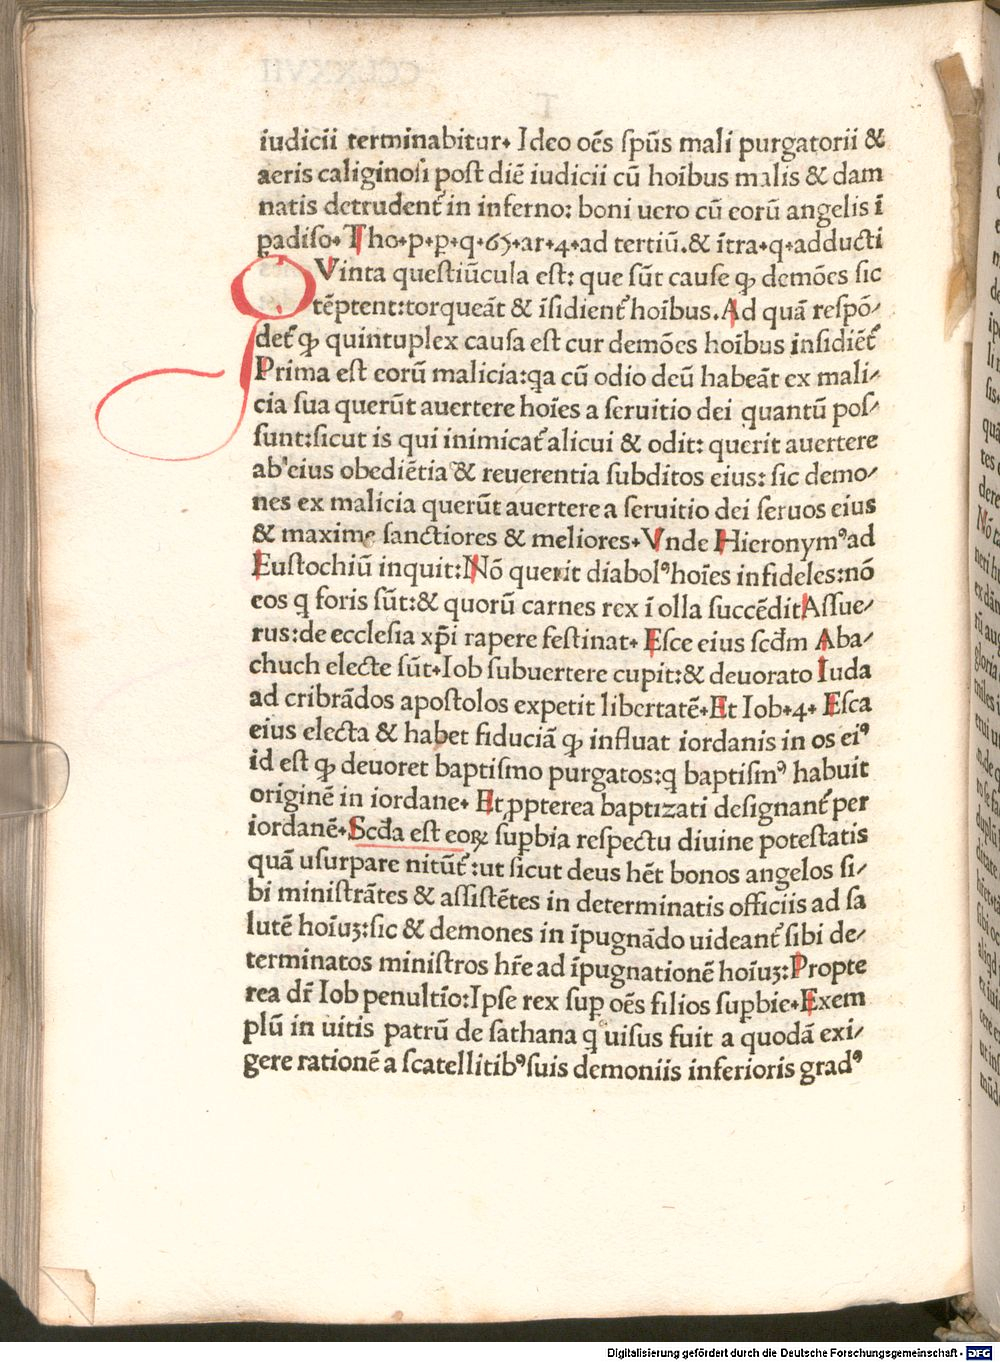 iudicii terminabitur. Ideo oēs spūs mali purgatorii &
aeris caliginosi post diē iudicii cū hoībus malis & dam
natis detrudent᷑ in inferno: boni uero cū eorū angelis ī
ꝑadiso. Tho.p.p.q.65.ar.4.ad tertiū.& ītra.q.adducti
QVinta questiūcula est: que sūt cause ꝙ demōes sic
tēptent:torqueāt & īsidient᷑ hoībus. Ad quā respō/
det᷑ ꝙ quintuplex causa est cur demōes hoībus insidiēt᷑
Prima est eorū malicia:qa cū odio deū habeāt ex mali/
cia sua querūt auertere hoīes a seruitio dei quantū pos/
sunt:sicut is qui inimicat᷑ alicui & odit: querit auertere
ab eius obediētia & reuerentia subditos eius: sic demo/
nes ex malicia querūt auertere a seruitio dei seruos eius
& maxime sanctiores & meliores. Vnde Hieronymꝰ ad
Eustochiū inquit: Nō querit diabolꝰ hoīes infideles:nō
eos q foris sūt:& quorū carnes rex ī olla succēdit Assue/
rus:de ecclesia xp̄i rapere festinat. Esce eius scđm Aba/
chuch electe sūt. Iob subuertere cupit:& deuorato Iuda
ad cribrādos apostolos expetit libertatē. Et Iob.4. Esca
eius electa & habet fiduciā ꝙ influat iordanis in os eiꝰ
id est ꝙ deuoret baptismo purgatos:q baptismꝰ habuit
originē in iordane. Et ꝓpterea baptizati designant᷑ per
iordanē. Scđa est eoꝝ suꝑbia respectu diuine potestatis
quā usurpare nitūt᷑:ut sicut deus hēt bonos angelos si/
bi ministrātes & assistētes in determinatis officiis ad sa
lutē hoīuꝫ:sic & demones in īpugnādo uideant᷑ sibi de/
terminatos ministros hr̄e ad īpugnationē hoīuꝫ:Propte
rea dr̄ Iob penultīo:Ipse rex suꝑ oēs filios suꝑbie. Exem
plū in uitis patrū de sathana q uisus fuit a quodā exi/
gere rationē a scatellitibꝰ suis demoniis inferioris gradꝰ
Digitalisierung gefördert durch die Deutsche Forschungsgemeinschaft - DFG